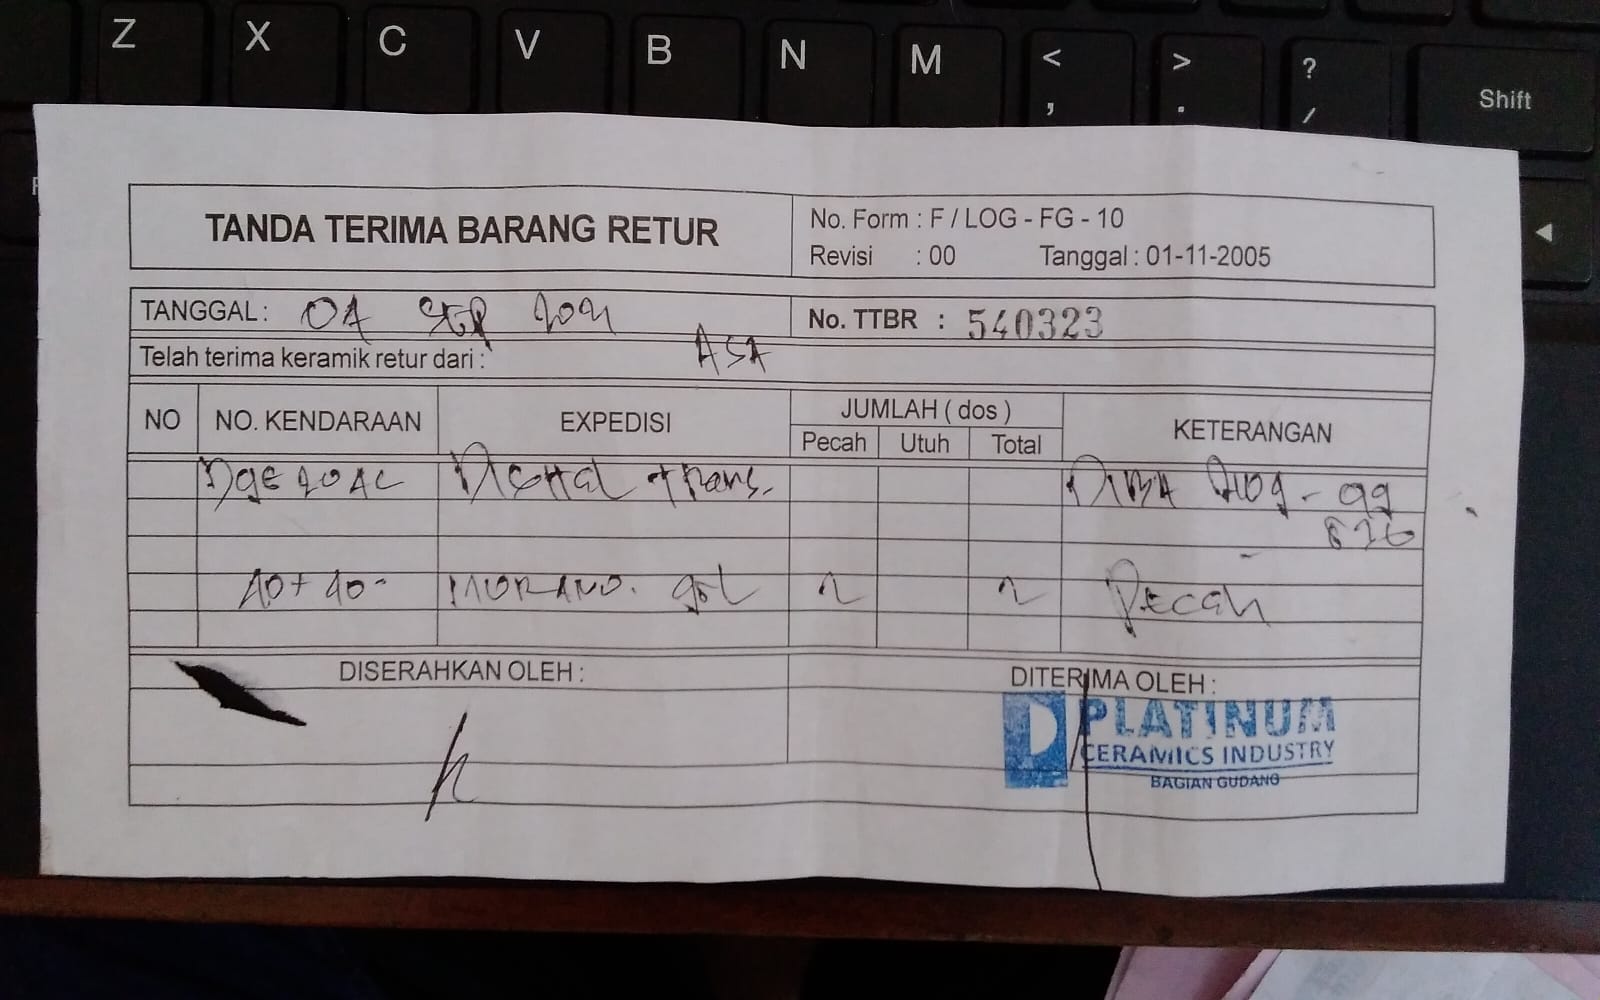 Z X C V B N M < , > . ? / Shift
TANDA TERIMA BARANG RETUR
No. Form : F / LOG - FG - 10
Revisi : 00 Tanggal : 01-11-2005
TANGGAL : 04 SEP 2021
No. TTBR : 540323
Telah terima keramik retur dari : ASA
NO NO. KENDARAAN EXPEDISI JUMLAH ( dos ) KETERANGAN
Pecah Utuh Total
trans.
40+40 MORANO. 2 2 Pecah
DISERAHKAN OLEH :
DITERIMA OLEH :
PLATINUM
CERAMICS INDUSTRY
BAGIAN GUDANG